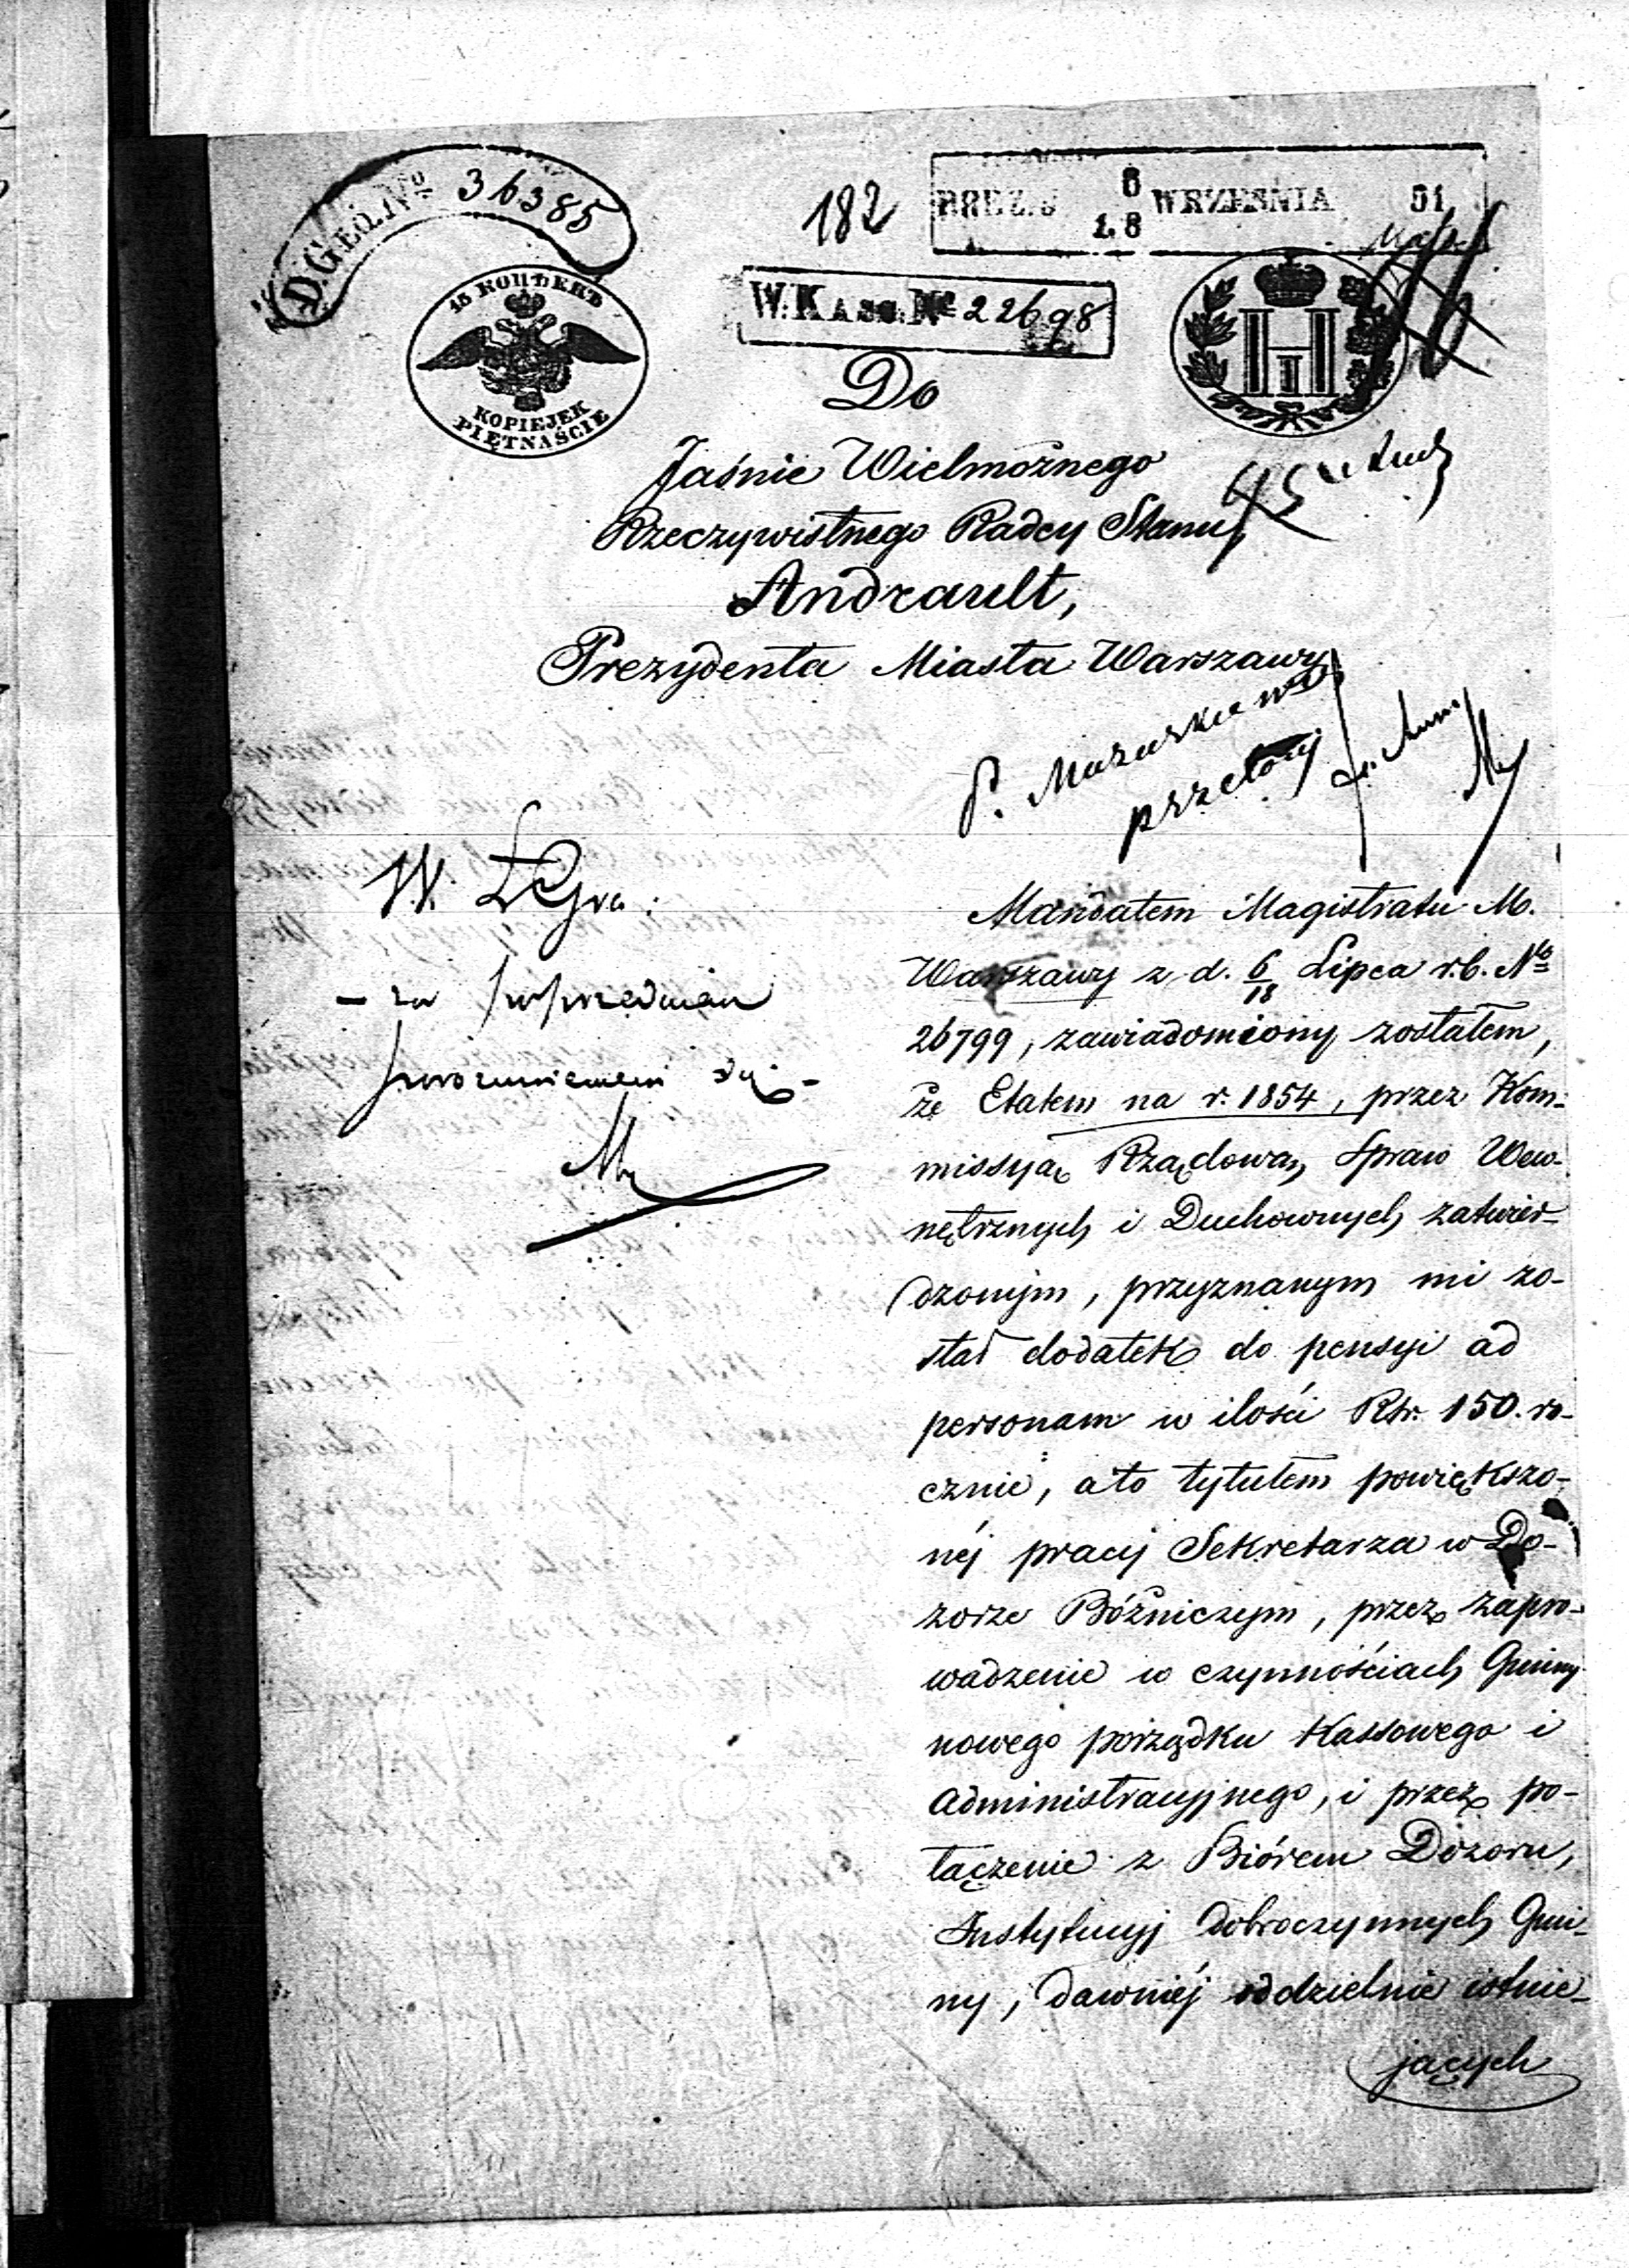 D. Gł. Q. No 36385
182
PREZ. D 6/18 WRZEŚNIA 51
W. KASS. No 22698
15 КОПѢЕКЪ
KOPIEJEK
PIĘTNAŚCIE
H I
Do
Jaśnie Wielmożnego
Rzeczywistnego Radcy Stanu
Andrault,
Prezydenta Miasta Warszawy
P. Mazurkiewicz
przełoży
W.
– za poprzedniem
porozumieniem się –
Mandatem Magistratu M.
Warszawy z d. 6/18 Lipca r.b. No
26799, zawiadomiony zostałem,
że Etatem na r. 1854, przez Kom-
missyą Rządową Spraw Wew-
nętrznych i Duchownych zatwier-
dzonym, przyznanym mi zo-
stał dodatek do pensyi ad
personam w ilości Rsr. 150. ro-
cznie, a to tytułem powiększo-
néj pracy Sekretarza w Do-
zorze Bóżniczym, przez zapro-
wadzenie w czynnościach Gminy
nowego porządku Kassowego i
Administracyjnego, i przez po-
łączenie z Biórem Dozoru,
Instytucyj dobroczynnych Gmi-
ny, dawniéj oddzielnie istnie-
jących